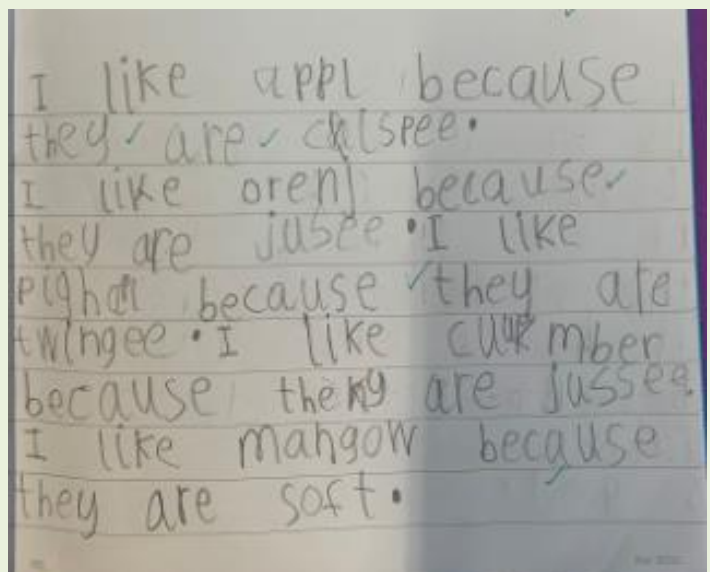 I like appl because
they are crispee.
I like orenj because
they are jusee. I like
because they are
twingee. I like cucumber
because they are jussee.
I like mangow because
they are soft.